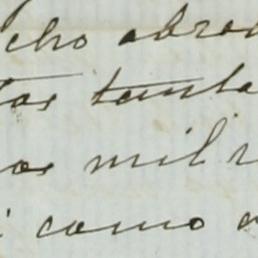 cho abra
tos tanta
os mil
como